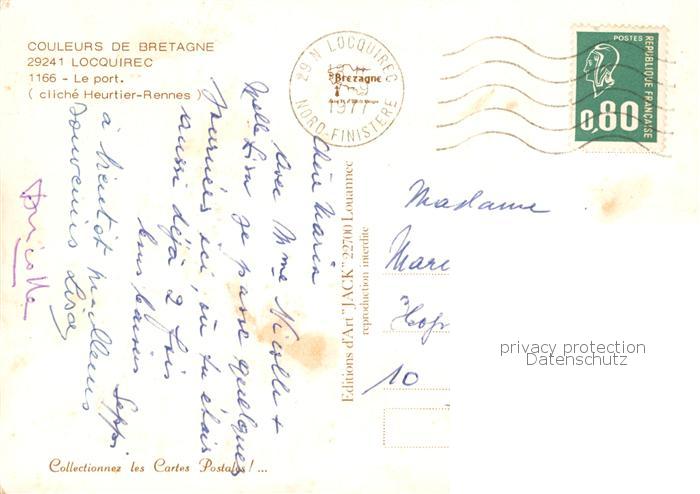 COULEURS DE BRETAGNE
29241 LOCQUIREC
1166 - Le port.
( cliché Heurtier-Rennes )
29 N LOCQUIREC
Bretagne
1977
NORD-FINISTERE
POSTES
REPUBLIQUE FRANÇAISE
0,80
Chère Maria
Avec Mme Nicolle +
Melle Lisa je passe quelques
journées ici, où tu étais
aussi déjà 2 fois
bons baisers Seppi
à bientôt meilleurs
souvenirs Lisa
Nicolle
Editions d'Art "JACK" 22700 Louannec
reproduction interdite
Madame
10
privacy protection
Datenschutz
Collectionnez les Cartes Postales ! ...